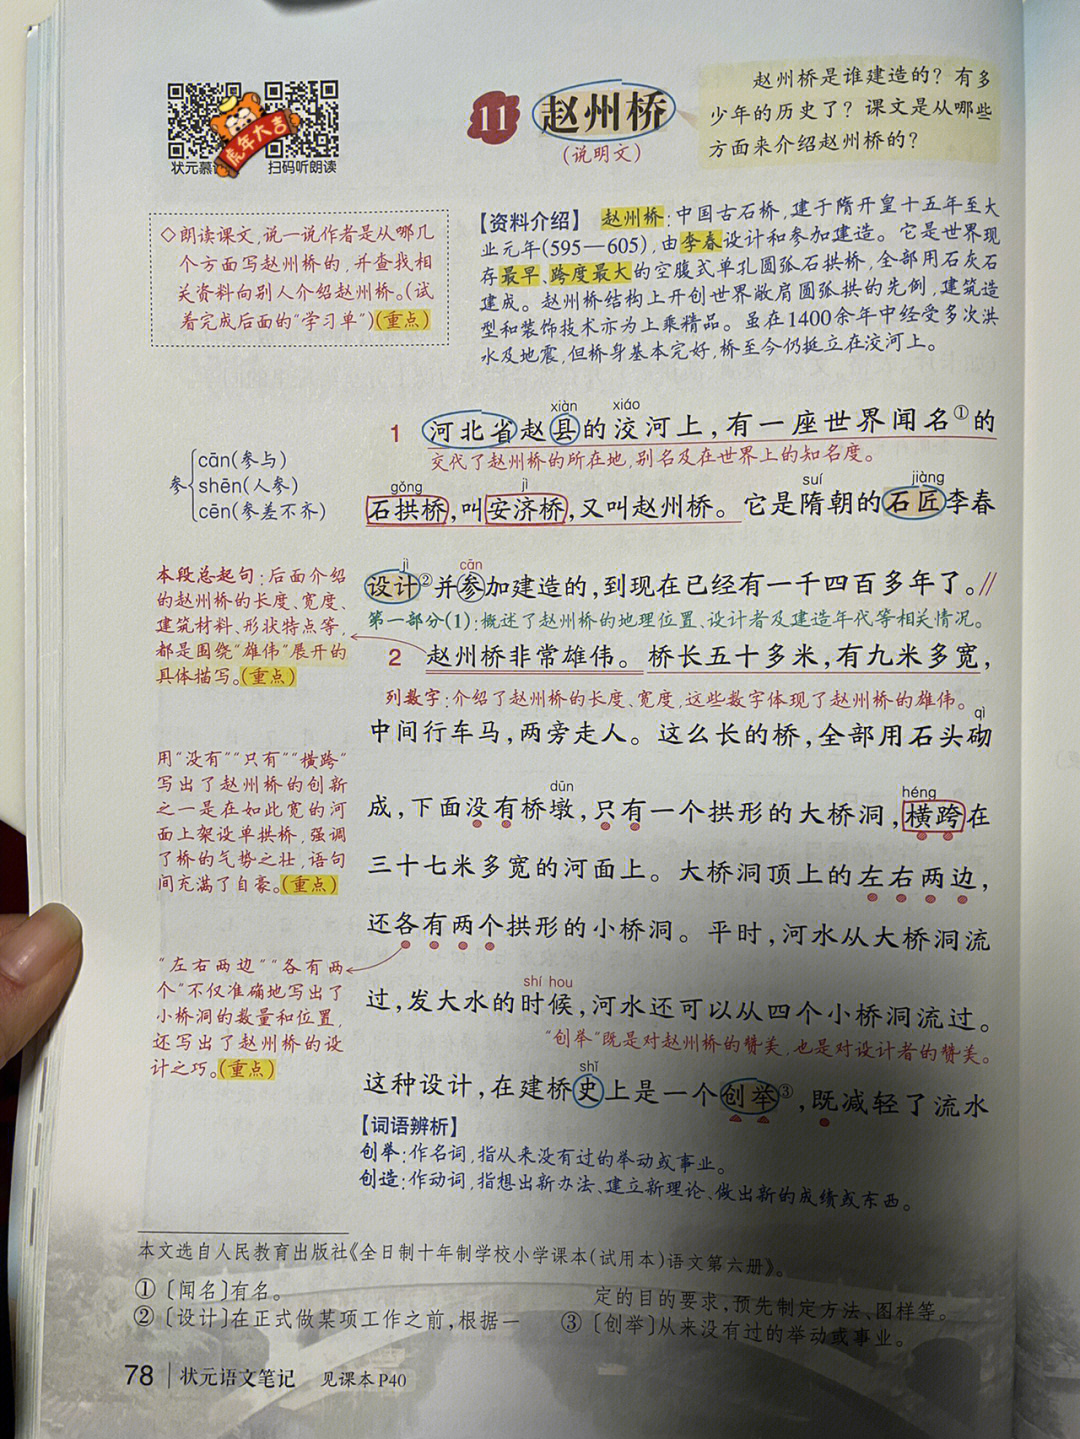 状元慕
扫码听朗读
虎年大吉
11 赵州桥
(说明文)
赵州桥是谁建造的？有多
少年的历史了？课文是从哪些
方面来介绍赵州桥的？
◇朗读课文,说一说作者是从哪几
个方面写赵州桥的,并查找相
关资料向别人介绍赵州桥。(试
着完成后面的“学习单”)(重点)
【资料介绍】 赵州桥:中国古石桥,建于隋开皇十五年至大
业元年(595—605),由李春设计和参加建造。它是世界现
存最早、跨度最大的空腹式单孔圆弧石拱桥,全部用石灰石
建成。赵州桥结构上开创世界敞肩圆弧拱的先例,建筑造
型和装饰技术亦为上乘精品。虽在1400余年中经受多次洪
水及地震,但桥身基本完好,桥至今仍挺立在洨河上。
xiàn xiáo
1 河北省赵县的洨河上,有一座世界闻名①的
交代了赵州桥的所在地,别名及在世界上的知名度。
gǒng jì suí jiàng
石拱桥,叫安济桥,又叫赵州桥。它是隋朝的石匠李春
jì cān
设计②并参加建造的,到现在已经有一千四百多年了。//
第一部分(1):概述了赵州桥的地理位置、设计者及建造年代等相关情况。
2 赵州桥非常雄伟。桥长五十多米,有九米多宽,
列数字:介绍了赵州桥的长度、宽度,这些数字体现了赵州桥的雄伟。
qì
中间行车马,两旁走人。这么长的桥,全部用石头砌
dūn héng
成,下面没有桥墩,只有一个拱形的大桥洞,横跨在
三十七米多宽的河面上。大桥洞顶上的左右两边,
还各有两个拱形的小桥洞。平时,河水从大桥洞流
shí hou
过,发大水的时候,河水还可以从四个小桥洞流过。
“创举”既是对赵州桥的赞美,也是对设计者的赞美。
shǐ
这种设计,在建桥史上是一个创举③,既减轻了流水
【词语辨析】
创举:作名词,指从来没有过的举动或事业。
创造:作动词,指想出新办法、建立新理论、做出新的成绩或东西。
参
cān(参与)
shēn(人参)
cēn(参差不齐)
本段总起句:后面介绍
的赵州桥的长度、宽度、
建筑材料、形状特点等,
都是围绕“雄伟”展开的
具体描写。(重点)
用“没有”“只有”“横跨”
写出了赵州桥的创新
之一是在如此宽的河
面上架设单拱桥,强调
了桥的气势之壮,语句
间充满了自豪。(重点)
“左右两边”“各有两
个”不仅准确地写出了
小桥洞的数量和位置,
还写出了赵州桥的设
计之巧。(重点)
本文选自人民教育出版社《全日制十年制学校小学课本(试用本)语文第六册》。
①〔闻名〕有名。
②〔设计〕在正式做某项工作之前,根据一
定的目的要求,预先制定方法、图样等。
③〔创举〕从来没有过的举动或事业。
78 状元语文笔记 见课本P40